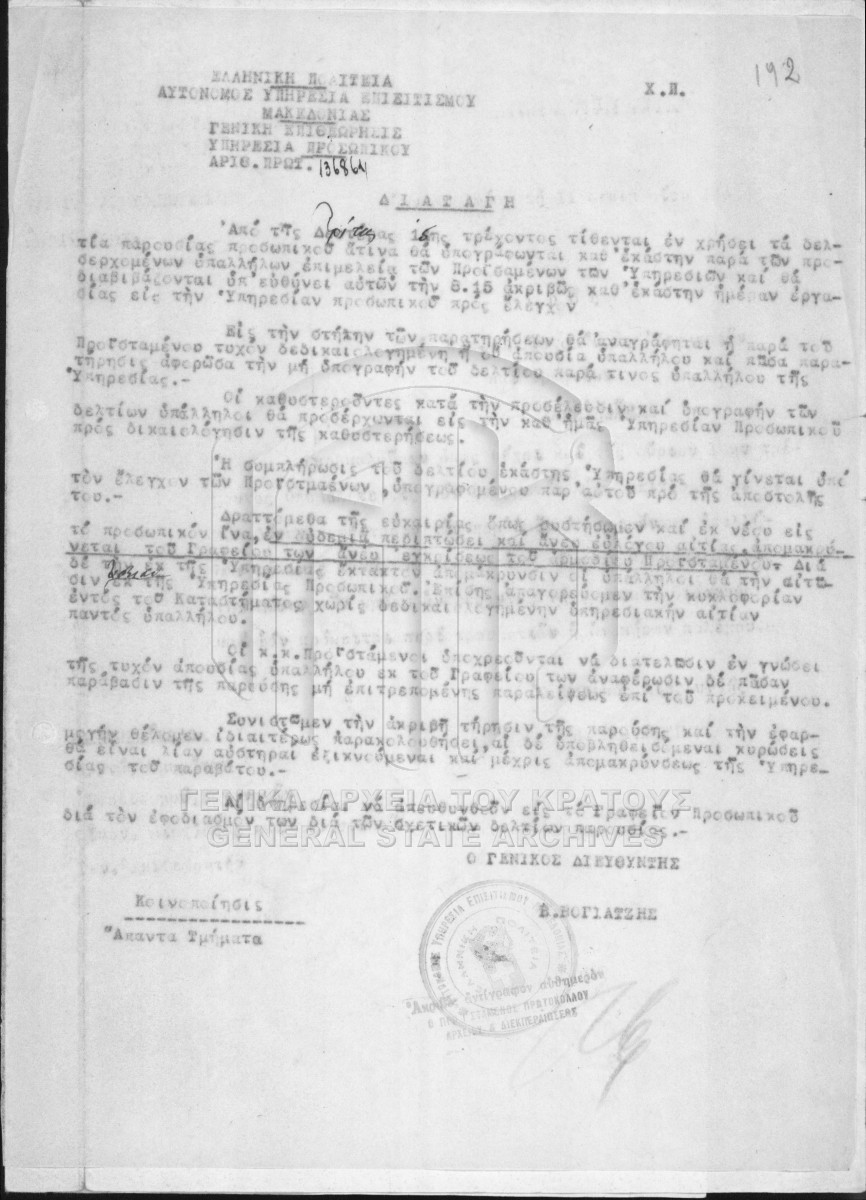 192
ΕΛΛΗΝΙΚΗ ΠΟΛΙΤΕΙΑ
Χ.Π.
ΑΥΤΟΝΟΜΟΣ ΥΠΗΡΕΣΙΑ ΕΠΙΣΙΤΙΣΜΟΥ
ΜΑΚΕΔΟΝΙΑΣ
ΓΕΝΙΚΗ ΕΠΙΘΕΩΡΗΣΙΣ
ΥΠΗΡΕΣΙΑ ΠΡΟΣΩΠΙΚΟΥ
ΑΡΙΘ.ΠΡΩΤ. 136864
ΔΙΑΤΑΓΗ
Ἀπό τῆς Τρίτης 15ης τρέχοντος τίθενται ἐν χρήσει τά δελ-
τία παρουσίας προσωπικοῦ ἅτινα θά ὑπογράφωνται καθ'ἑκάστην παρά τῶν προ-
σερχομένων ὑπαλλήλων ἐπιμελεία τῶν Προϊσαμένων τῶν Ὑπηρεσιῶν καί θά
διαβιβάζονται ὑπ'εὐθύνει αὐτῶν τήν 8.15 ἀκριβῶς καθ'ἑκάστην ἡμέραν ἐργα-
σίας εἰς τήν Ὑπηρεσίαν προσωπικοῦ πρός ἔλεγχον
Εἰς τήν στήλην τῶν παρατηρήσεων θά ἀναγράφηται ἡ παρά τοῦ
Προϊσταμένου τυχόν δεδικαιολογημένη ἤ οὔ ἀπουσία ὑπαλλήλου καί πᾶσα παρα-
τήρησις ἀφορῶσα τήν μή ὑπογραφήν τοῦ δελτίου παρά τινος ὑπαλλήλου τῆς
Ὑπηρεσίας.-
Οἱ καθυστεροῦντες κατά τήν προσέλευσιν καί ὑπογραφήν τῶν
δελτίων ὑπάλληλοι θά προσέρχωνται εἰς τήν καθ'ἡμᾶς Ὑπηρεσίαν Προσωπικοῦ
πρός δικαιολόγησιν τῆς καθυστερήσεως.
Ἡ συμπλήρωσις τοῦ δελτίου ἑκάστης Ὑπηρεσίας θά γίνεται ὑπό
τόν ἔλεγχον τῶν Προϊστμαένων ,ὑπογραφομένου παρ'αὐτοῦ πρό τῆς ἀποστολῆς
του.-
Δραττόμεθα τῆς εὐκαιρίας ὅπως συστήσωμεν καί ἐκ νέου εἰς
τό προσωπικόν ἵνα,ἐν οὐδεμιᾶ περιπτώσει καί ἄνευ εὐλόγου αἰτίας ἀπομακρύ-
νεται τοῦ Γραφείου των ἄνευ ἐγκρίσεως τοῦ ἁρμοδίου Προϊσταμένου. Διά
δέ τῆς Ὑπηρεσίας ἔκτακτον ἀπομάκρυνσιν οἱ ὑπάλληλοι θά τήν αἰτῶ-
σιν ἐκ τῆς Ὑπηρεσίας Προσωπικοῦ. Ἐπίσης ἀπαγορεύομεν τήν κυκλοφορίαν
ἐντός τοῦ Καταστήματος χωρίς δεδικαιολογημένην ὑπηρεσιακήν αἰτίαν
παντός ὑπαλλήλου.
Οἱ κ.κ.Προϊστάμενοι ὑποχρεοῦνται νά διατελῶσιν ἐν γνώσει
τῆς τυχόν ἀπουσίας ὑπαλλήλου ἐκ τοῦ Γραφείου των ἀναφέρωσιν δέ πᾶσαν
παράβασιν τῆς παρούσης μή ἐπιτρεπομένης παραλείψεως ἐπί τοῦ προκειμένου.
Συνιστῶμεν τήν ἀκριβῆ τήρησιν τῆς παρούσης καί τήν ἐφαρ-
μογήν θέλομεν ἰδιαιτέρως παρακολουθήσει,αἱ δέ ὑποβληθεισόμεναι κυρώσεις
θά εἶναι λίαν αὐστηραί ἐξικνούμεναι καί μέχρις ἀπομακρύνσεως τῆς Ὑπηρε-
σίας τοῦ παραβάτου.-
ΓΕΝΙΚΑ ΑΡΧΕΙΑ ΤΟΥ ΚΡΑΤΟΥΣ
Αἱ Ὑπηρεσίαι νά ἀπευθυνθοῦν εἰς τό Γραφεῖον Προσωπικοῦ
διά τόν ἐφοδιασμόν των διά τῶν σχετικῶν δελτίων παρουσίας.-
GENERAL STATE ARCHIVES
Ο ΓΕΝΙΚΟΣ ΔΙΕΥΘΥΝΤΗΣ
Κοινοποίησις
Β.ΒΟΓΙΑΤΖΗΣ
Ἅπαντα Τμήματα
ΕΛΛΗΝΙΚΗ ΠΟΛΙΤΕΙΑ
Ἀκριβές ἀντίγραφον αὐθημερόν
ΠΡΩΤΟΚΟΛΛΟΥ
ΑΡΧΕΙΟΥ & ΔΙΕΚΠΕΡΑΙΩΣΕΩΣ